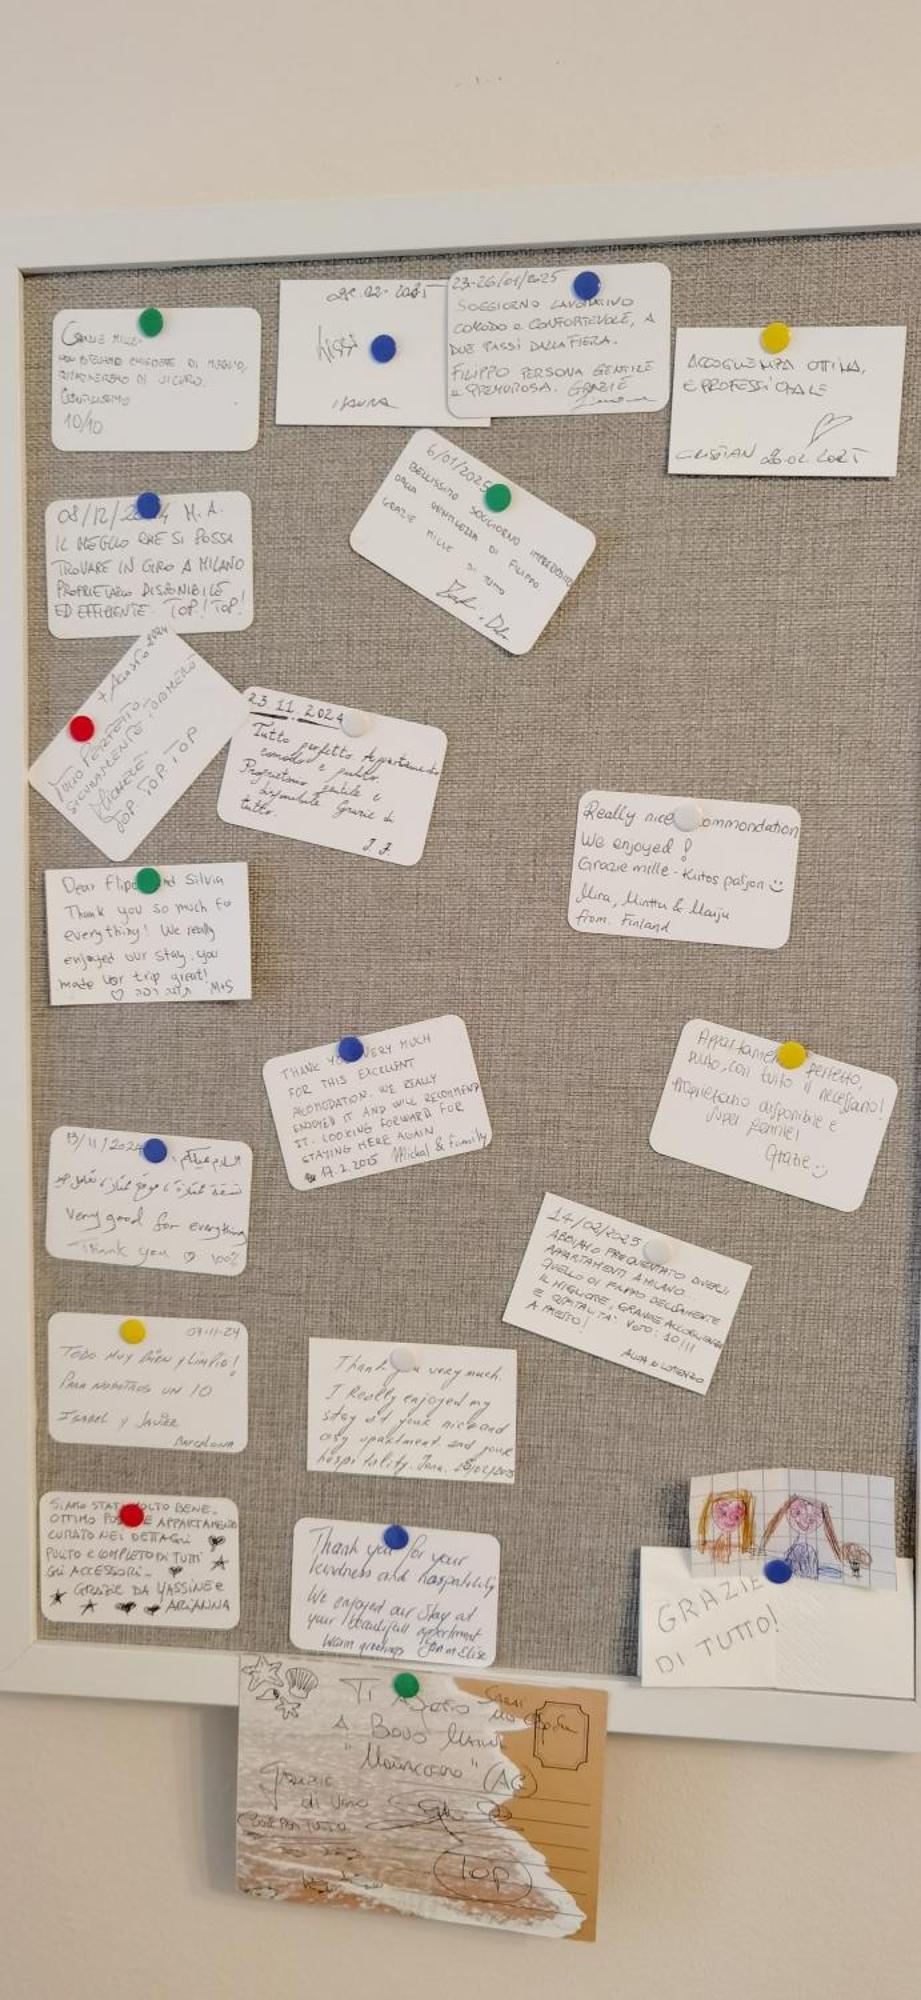 GRAZIE MILLE.
10/10
ISAURA
23-26/01/2025
SOGGIORNO LAVORATIVO
COMODO e CONFORTEVOLE, A
DUE PASSI DALLA FIERA.
FILIPPO PERSONA GENTILE
e PREMUROSA. GRAZIE
ACCOGLIENZA OTTIMA,
E PROFESSIONALE
CRISTIAN
08/12/2024 M.A.
IL MEGLIO CHE SI POSSA
TROVARE IN GIRO A MILANO
PROPRIETARIO DISPONIBILE
ED EFFICIENTE. TOP! TOP!
6/01/2025
BELLISSIMO SOGGIORNO IMPREZIOSITO
DALLA GENTILEZZA DI FILIPPO
GRAZIE MILLE DI TUTTO
AGOSTO 2024
TUTTO PERFETTO,
SICURAMENTE TORNERÒ
MICHELE.
TOP. TOP. TOP
23.11.2024
Tutto perfetto Appartamento
comodo e pulito.
Proprietario gentile e
disponibile Grazie di
tutto.
Really nice ommondation
We enjoyed!
Grazie mille - Kiitos paljon
Mira, Minttu & Maiju
from Finland
Dear Flipo and Silvia
Thank you so much fo
everything! We really
enjoyed our stay. you
made uor trip great!
♡ תודה רבה M+S
THANK YOU VERY MUCH
FOR THIS EXCELLENT
ACOMODATION. WE REALLY
ENJOYED IT AND WILL RECOMMEND
IT. LOOKING FORWARD FOR
STAYING HERE AGAIN
17.2.2025 Michal & family
Appartamento perfetto,
pulito, con tutto il necessario!
Proprietario disponibile e
super gentile!
Grazie
13/11/2024 السلام عليكم
Very good for everything
Thank you ♡ 100%
14/02/2025
ABBIAMO FREQUENTATO DIVERSI
APPARTAMENTI A MILANO...
QUELLO DI FILIPPO DECISAMENTE
IL MIGLIORE, GRANDE ACCOGLIENZA
E OSPITALITA'. VOTO: 10!!!
A PRESTO!
LORENZO
TODO MUY BIEN y LIMPIO!
PARA NOSOTROS UN 10
ISABEL Y JAVIER
BARCELONA
Thank you very much.
I Really enjoyed my
stay at your nice and
cosy apartment and your
hospitality.
SIAMO STATI MOLTO BENE.
OTTIMO POSTO E APPARTAMENTO
CURATO NEI DETTAGLI
PULITO E COMPLETO DI TUTTI
GLI ACCESSORI.
GRAZIE DA YASSINE e
ARIANNA
Thank you for your
kindness and hospitality
We enjoyed our stay at
your beautifull apartment
Warm greetings Elise
GRAZIE
DI TUTTO!
TI ASPETTO
A
(AG)
Grazie
di vero
TOP